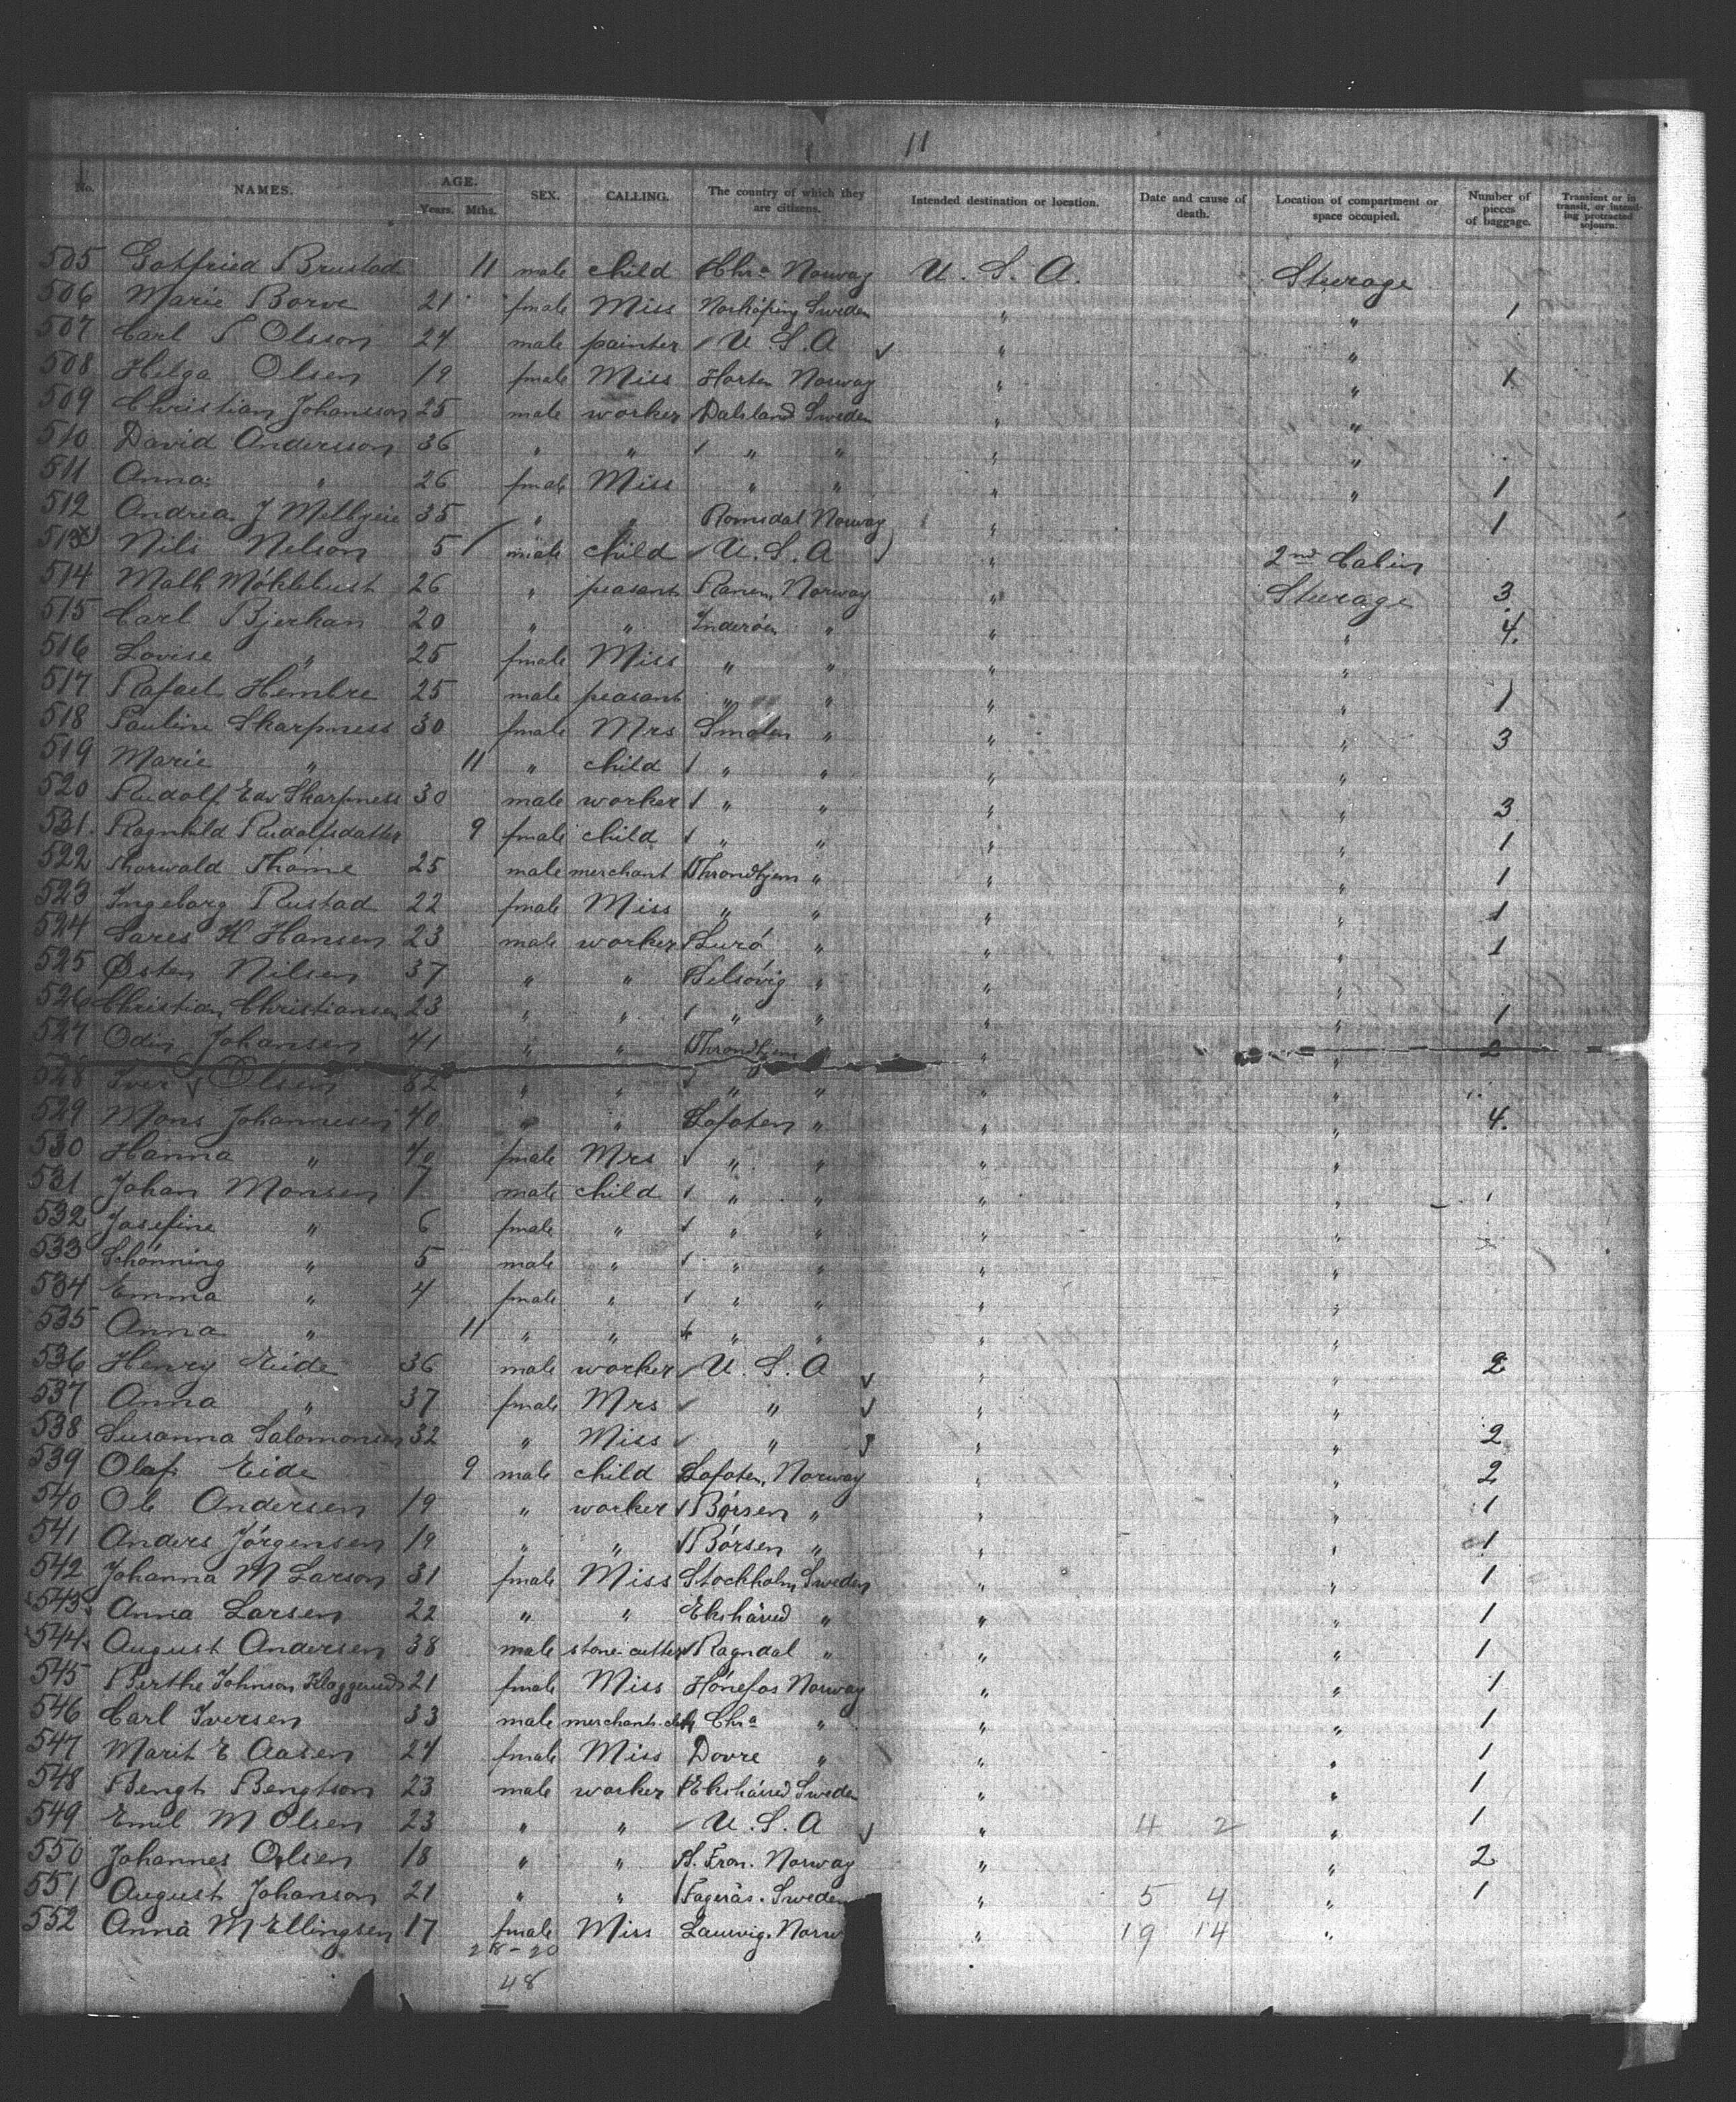 11
No. NAMES. AGE. Years. Mths. SEX. CALLING. The country of which they are citizens. Intended destination or location. Date and cause of death. Location of compartment or space occupied. Number of pieces of baggage. Transient or in transit, or intending protracted sojourn.
505 Gotfried Brustad 11 male child Chra Norway U. S. A. Sturage
506 Marie Borve 21 fmale Miss Norköping Sweden " " 1
507 Carl S Olsson 24 male painter U. S. A " "
508 Helga Olsen 19 fmale Miss Horten Norway " " 1
509 Christian Johansson 25 male worker Dalsland Sweden " "
510 David Andersson 36 " " " " " "
511 Anna " 26 fmale Miss " " " " 1
512 Andrea J 35 " " Romsdal Norway " 1
513 Nils Nelson 5 male child U. S. A " 2nd Cabin
514 Math Möklebust 26 " peasant Ranen, Norway " Sturage 3
515 Carl Bjerkan 20 " " Inderöen " " " 4.
516 Lovise " 25 fmale Miss " " " "
517 Rafael Hembre 25 male peasant " " " " 1
518 Pauline Skarpness 30 fmale Mrs Smolen " " " 3
519 Marie " 11 " child " " " "
520 Rudolf Edv Skarpness 30 male worker " " " " 3
531. Ragnhild Rudolfsdatter 9 fmale child " " " " 1
522 Thorwald Thome 25 male merchant Throndhjem " " " 1
523 Ingeborg Rustad 22 fmale Miss " " " " 1
524 Lares K Hansen 23 male worker Lurö " " " 1
525 Østen Nilsen 37 " " Selsövig " " "
526 Christian Christiansen 23 " " " " " " 1
527 Odin Johansen 41 " " Throndhjem " " 2
528 Iver Olsen 62 " " " " " "
529 Mons Johannesen 40 " " Lofoten " " " 4.
530 Hanna " 40 fmale Mrs " " " "
531 Johan Monsen 7 male child " " " "
532 Josefine " 6 fmale " " " " "
533 Schönning " 5 male " " " " "
534 Emma " 4 fmale " " " " "
535 Anna " 11 " " " " " "
536 Henry Eide 36 male worker U. S. A " " 2
537 Anna " 37 fmale Mrs " " "
538 Susanna Salomonsen 32 " Miss " " " 2
539 Olaf Eide 9 male child Lofoten, Norway " " 2
540 Ole Andersen 19 " worker Börsen " " " 1
541 Anders Jörgensen 19 " " Börsen " " " 1
542 Johanna M Larson 31 fmale Miss Stockholm Sweden " " 1
543 Anna Larsen 22 " " Ekshärad " " " 1
544 August Andersen 38 male stone cutter Ragndal " " " 1
545 Berthe Johnson 21 fmale Miss Hönefos Norway " " 1
546 Carl Iversen 33 male merchant. clk Chra " " " 1
547 Marit E Aasen 24 fmale Miss Dovre " " " 1
548 Bengt Bengtson 23 male worker Ekshärad Sweden " " 1
549 Emil M Olsen 23 " " U. S. A " 4 2 " 1
550 Johannes Olsen 18 " " S. Fron. Norway " " 2
551 August Johanson 21 " " Fagerås. Sweden " 5 4 " 1
552 Anna M Ellingsen 17 fmale Miss Laurvig. Norw " 19 14 "
28-20
48